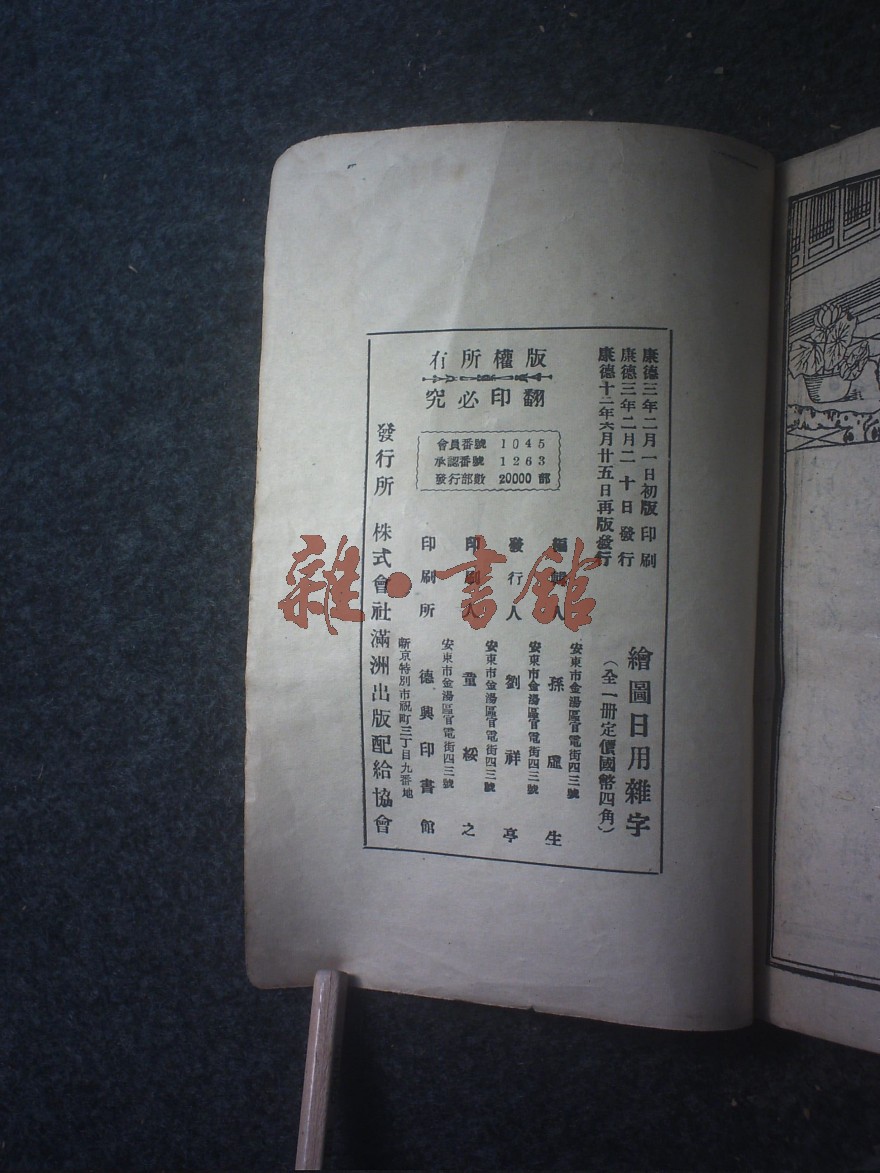 康德三年二月一日初版印刷
康德三年二月二十日發行
康德十二年六月廿五日再版發行
繪圖日用雜字
（全一冊定價國幣四角）
版權所有
翻印必究
會員番號 1045
承認番號 1263
發行部數 20000 部
安東市金湯區官電街四三號
編輯人 孫虛生
安東市金湯區官電街四三號
發行人 劉祥亭
安東市金湯區官電街四三號
印刷人 童綏之
安東市金湯區官電街四三號
印刷所 德興印書館
新京特別市祝町三丁目九番地
發行所 株式會社滿洲出版配給協會
雜·書館